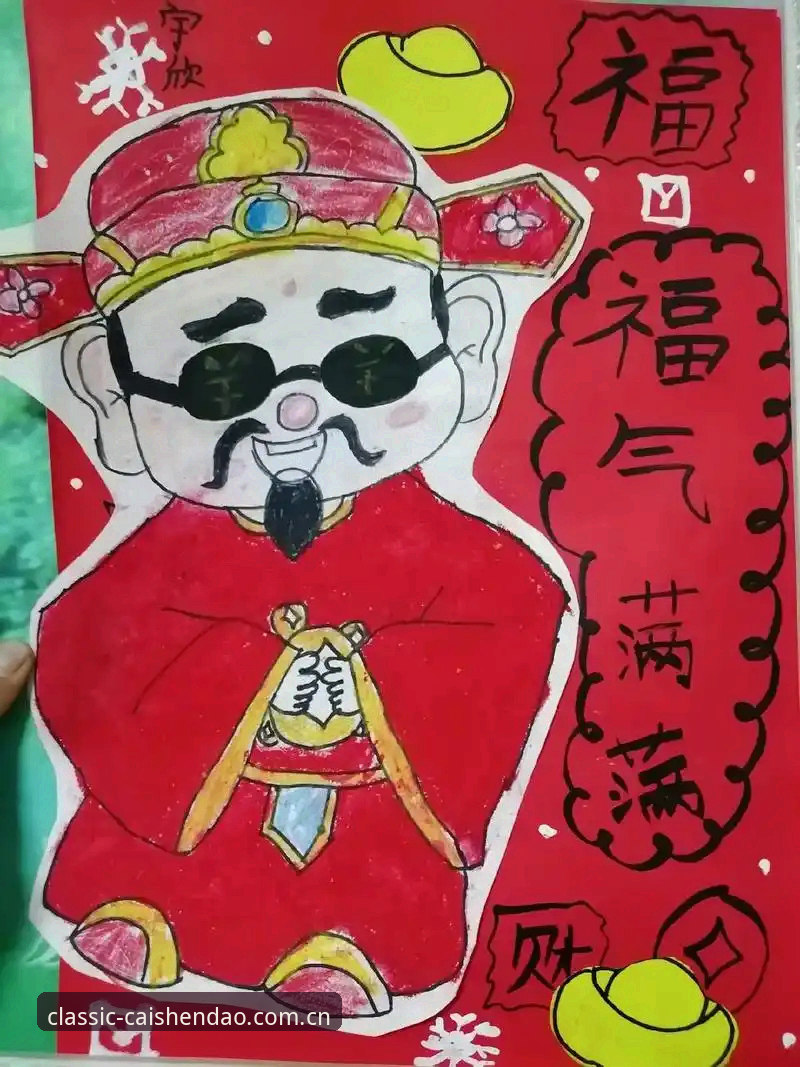 宇欣
福
福气满满
财
classic-caishendao.com.cn